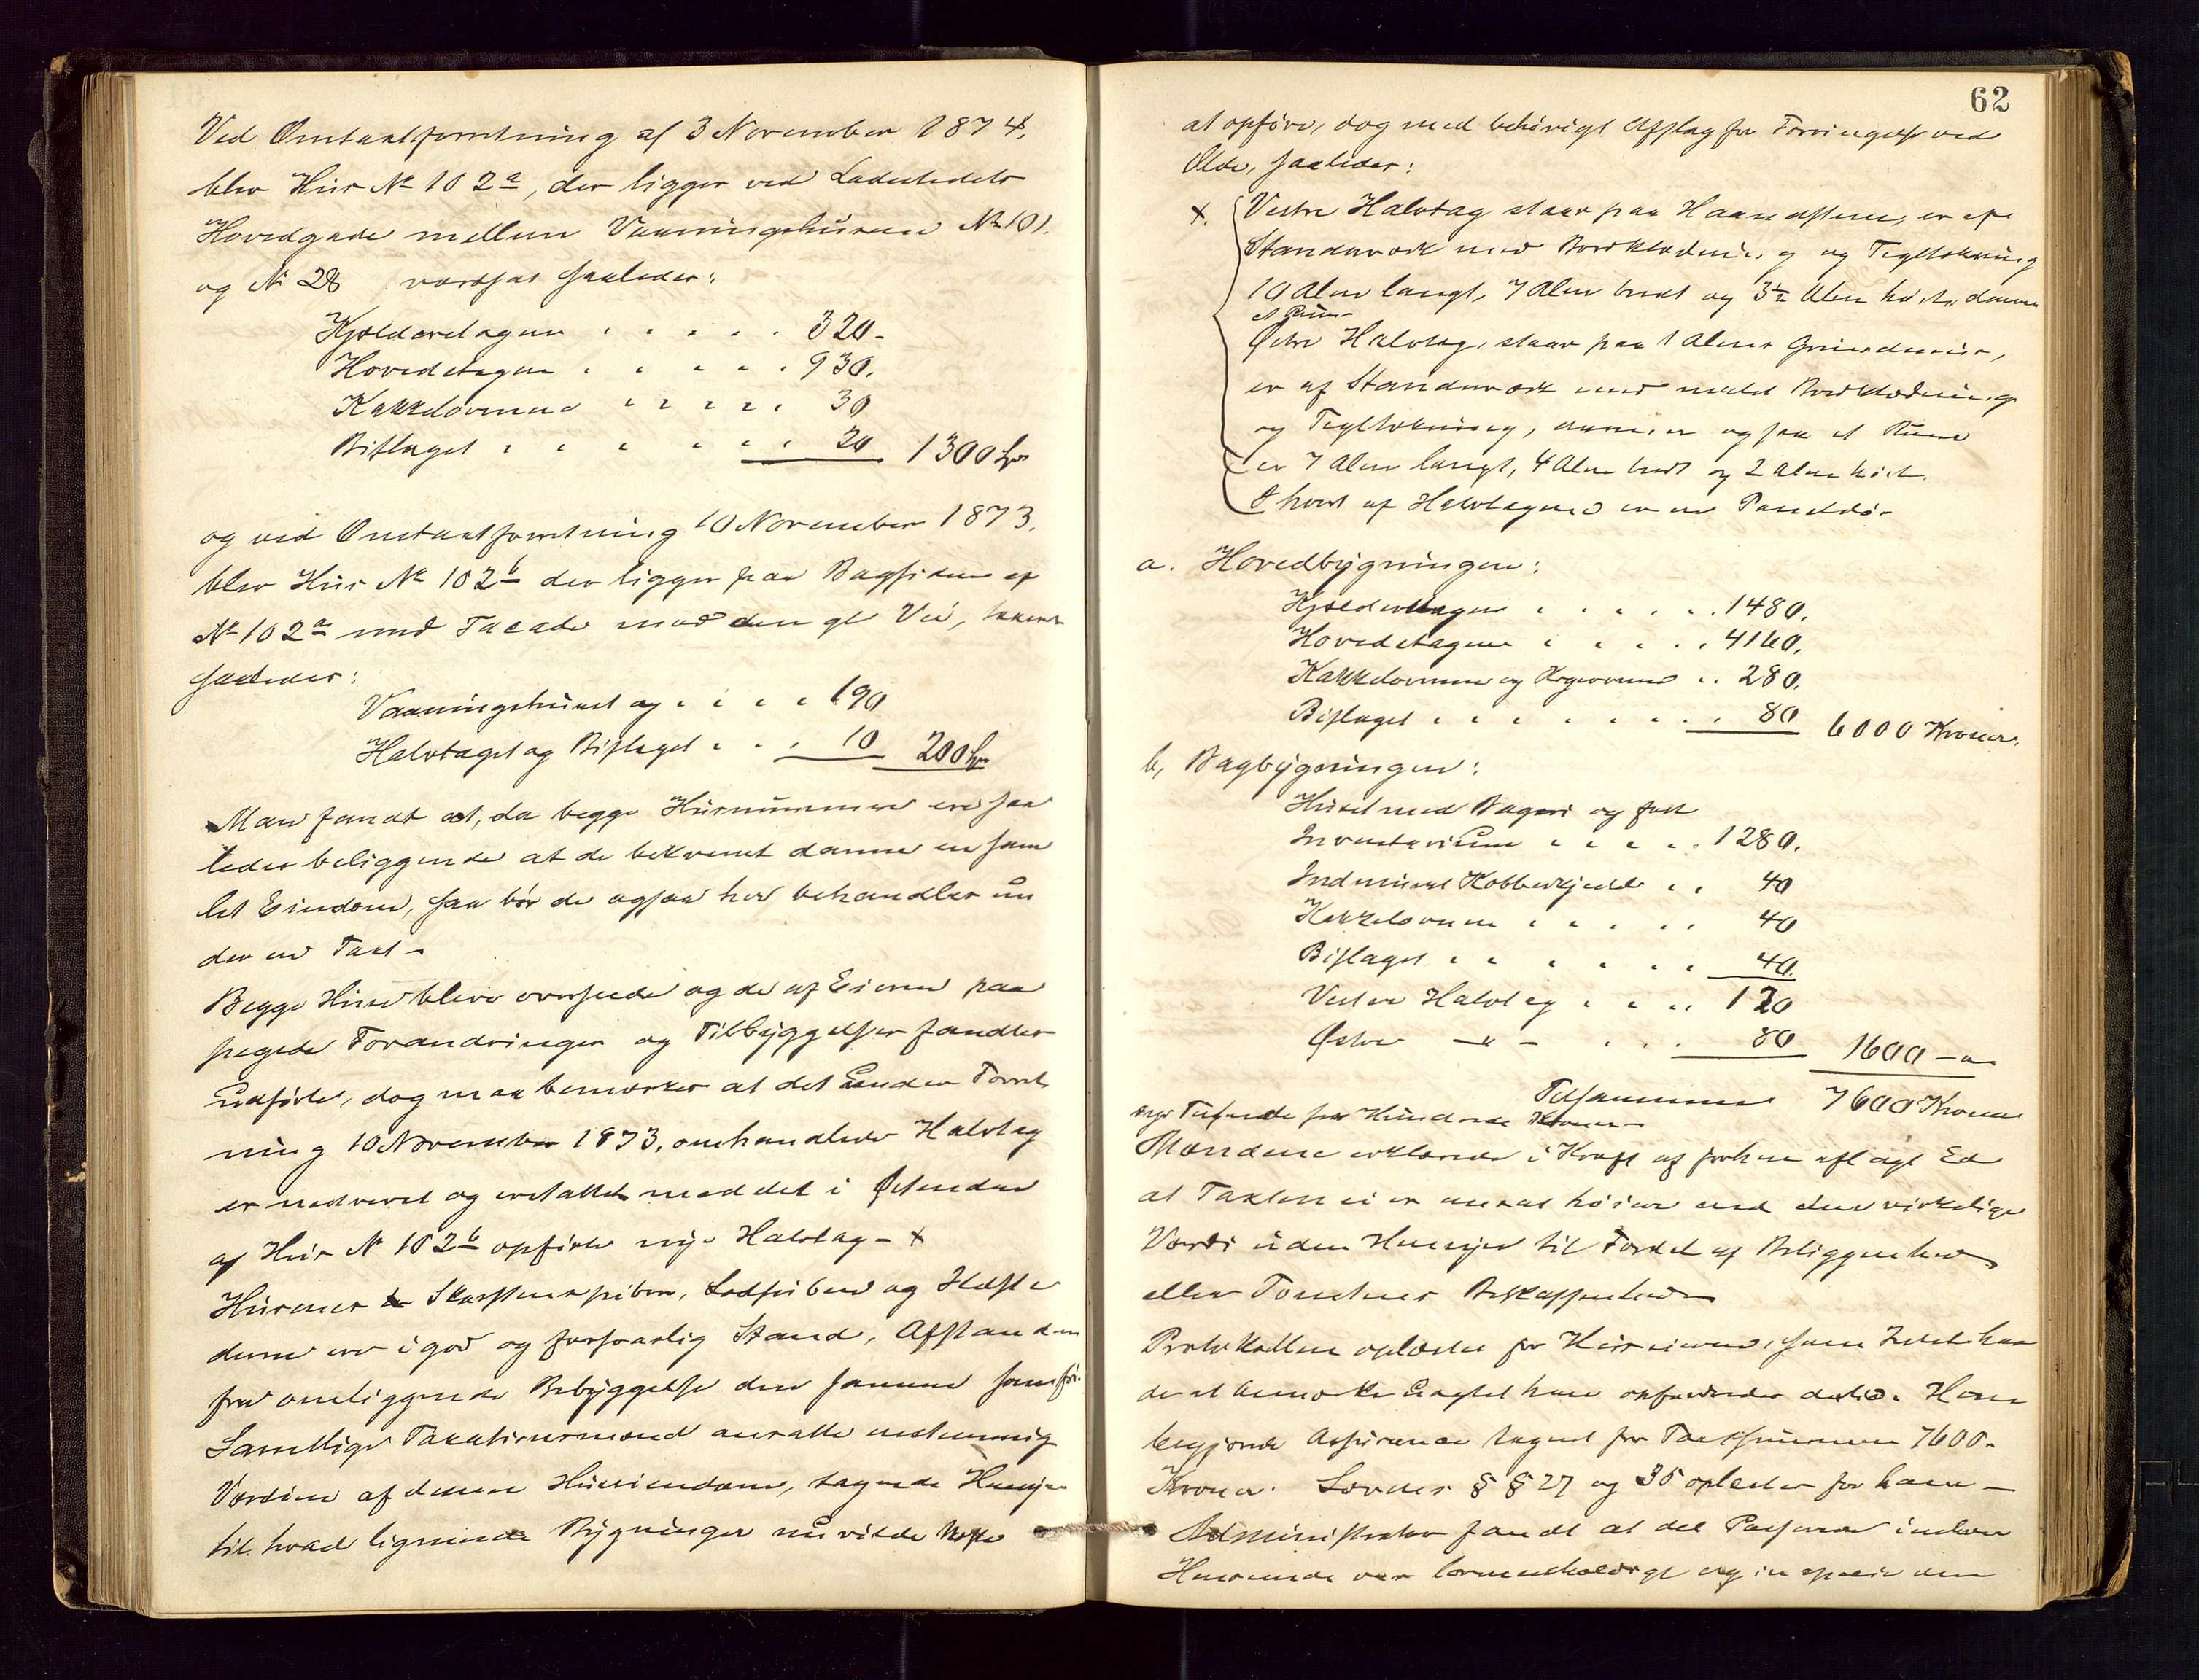 Ved Omtaxtforretning af 3 November 1874.
blev Huus № 102a, der ligger ved Ladestedets
Hovedgade mellem Vaaningshusene № 101.
og № 28 værdsat saaledes:
Kjælderetagen . . . . . 320-
Hovedetagen . . . . . 930.
Kakkelovnene . . . . 30
Bislaget . . . . . . 20 1300 Spd
og ved Omtaxtforretning 10 November 1873.
blev Huus № 102b der ligger paa Bagsiden af
№ 102a med Facade mod den gl Vei, taxeret
saaledes:
Vaaningshuset og . . . . 190
Halvtaget og Bislaget . . . 10 200 Spd
Man fandt at, da begge Husnummere ere saa
ledes beliggende at de bekvemt danne en sam
let Eiendom, saa bør de ogsaa her behandles un
der en Taxt -
Begge Huse bleve overseede og de af Eieren paa
pegede Forandringer og Tilbyggelser fandtes
udførte, dog maa bemærkes at det under Forret
ning 10 November 1873. omhandlede Halvtag
er nedrevet og erstattet med det i Østenden
af Hus № 102b opførte nye Halvtag - x
Husenes Skorstenspiber, Sodpiber og Ildste
derne ere i god og forsvarlig Stand, Afstanden
fra omliggende Bebyggelse den samme som før.
Samtlige Taxationsmænd ansatte enstemmig
Værdien af denne Huseiendom, tagende Hensyn
til hvad lignende Bygninger nu vilde koste
62
at opføre, dog med behørigt Afslag for Forringelse ved
Ælde, saaledes:
x. Vestre Halvtag staar paa Haandstene, er af
Standerværk med Bordklædning og Tegltækning
10 Alen langt, 7 Alen bredt og 3½ Alen høit, danner
et Rum -
Østre Halvtag, staar paa 1 Alens Grundmur,
er af Standerværk med malet Bordklædning
og Tegltækning, danner ogsaa et Rum
er 7 Alen langt, 4 Alen bredt og 2 Alen høit.
I hvert af Halvtagene er en Paneldør
a. Hovedbygningen:
Kjælderetagen . . . . . 1480.
Hovedetagen . . . . . 4160.
Kakkelovnene og Kogeovnene . . 280.
Bislaget . . . . . . . . 80 6000 Kroner.
b, Bagbygningen:
Huset med Bageri og fast
Inventarium . . . . . 1280.
Indmuret Kobberkjedel . . 40
Kakkelovnene . . . . . 40
Bislaget . . . . . . 40.
Vestre Halvtag . . . . 120
Østre -"- . . . 80 1600 - "
Tilsammen 7600 Kroner
siger Tusende sex Hundrede Kroner -
Mændene erklærede i Kraft af forhen aflagt Ed
at Taxten ei er ansat høiere end den virkelige
Værdi uden Hensyn til Fordel af Beliggenhed
eller Tomtens Beskaffenhed
Protokollen oplæstes for Huseieren, som Intet hav
de at bemærke uagtet han opfordredes dertil. Han
begjærede Assurance tegnet for Taxtsummen 7600.
Kroner. Lovens § § 27 og 35 oplæstes for ham -
Administrator fandt at det Passerede i enhver
Henseende var lovmedholdigt og in specie den